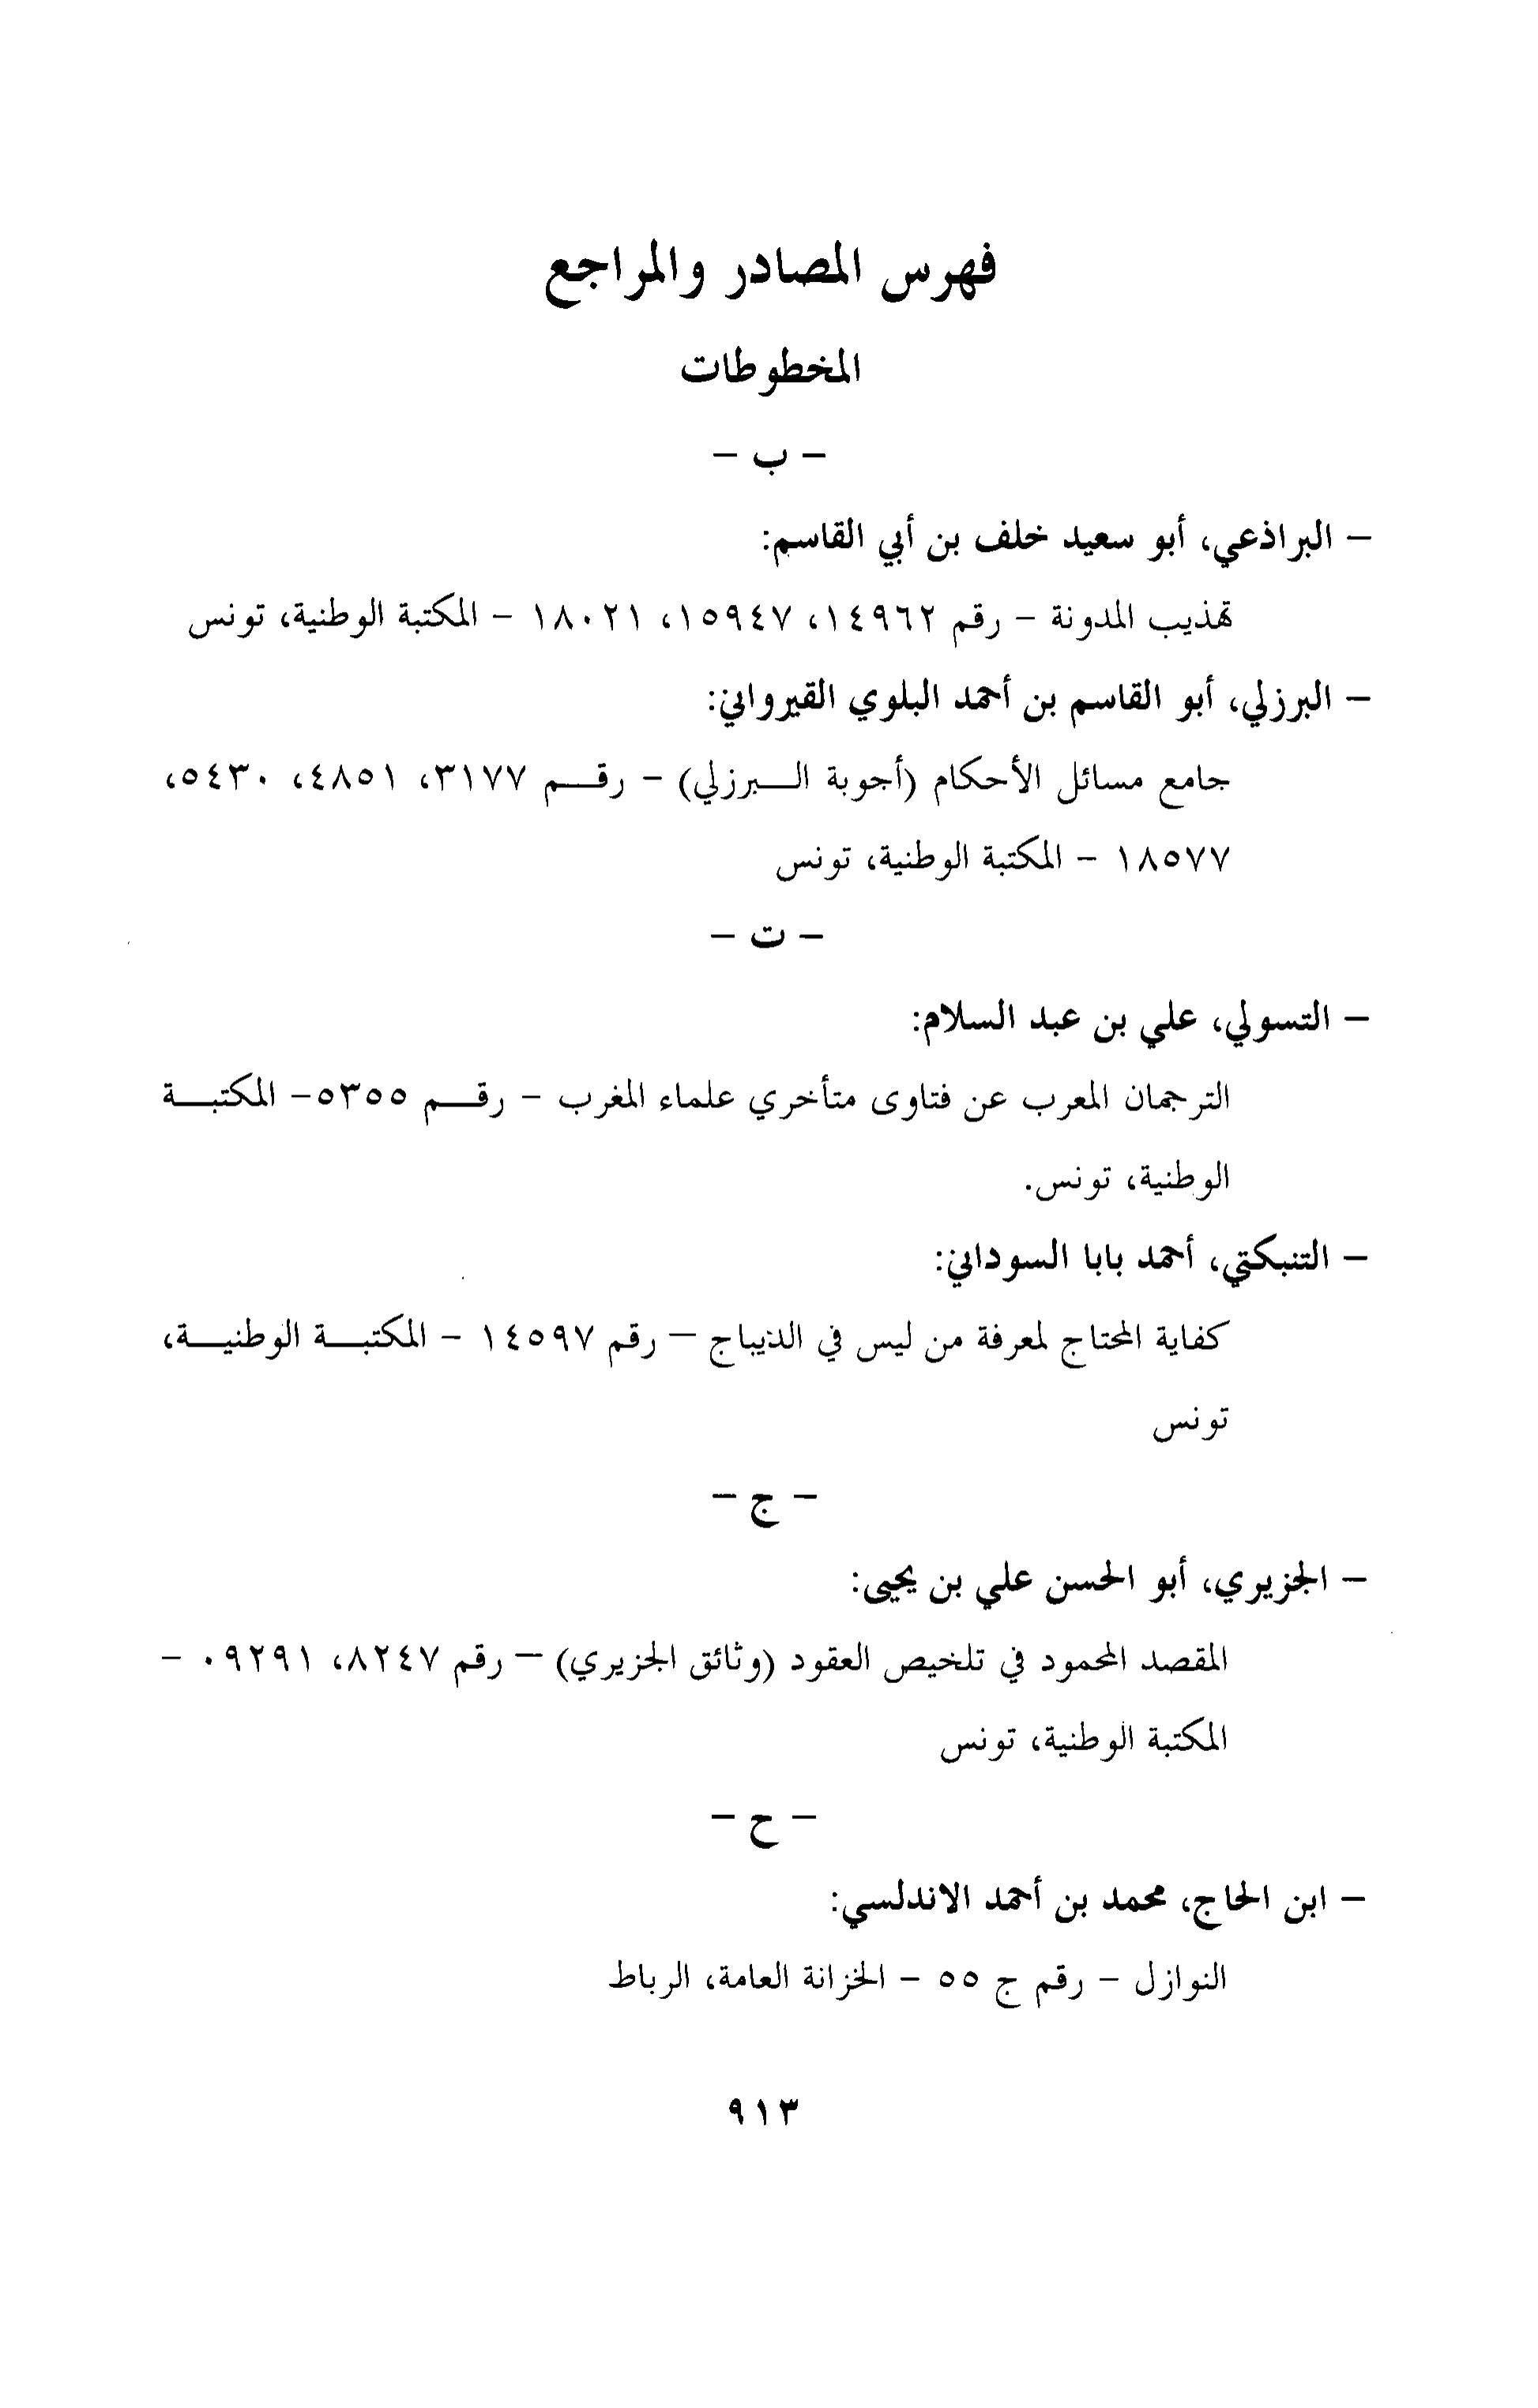 فهرس المصادر والمراجع
المخطوطات
– ب –
– البراذعي، أبو سعيد خلف بن أبي القاسم:
تهذيب المدونة – رقم ١٤٩٦٢، ١٥٩٤٧، ١٨٠٢١ – المكتبة الوطنية، تونس
– البرزلي، أبو القاسم بن أحمد البلوي القيرواني:
جامع مسائل الأحكام (أجوبة الـــبرزلي) – رقـــم ٣١٧٧، ٤٨٥١، ٥٤٣٠،
١٨٥٧٧ – المكتبة الوطنية، تونس
– ت –
– التسولي، علي بن عبد السلام:
الترجمان المعرب عن فتاوى متأخري علماء المغرب – رقـــم ٥٣٥٥– المكتبـــة
الوطنية، تونس.
– التنبكتي، أحمد بابا السوداني:
كفاية المحتاج لمعرفة من ليس في الديباج – رقم ١٤٥٩٧ – المكتبـــة الوطنيـــة،
تونس
– ج –
– الجزيري، أبو الحسن علي بن يحيى:
المقصد المحمود في تلخيص العقود (وثائق الجزيري) – رقم ٨٢٤٧، ٠٩٢٩١ –
المكتبة الوطنية، تونس
– ح –
– ابن الحاج، محمد بن أحمد الاندلسي:
النوازل – رقم ج ٥٥ – الخزانة العامة، الرباط
٩١٣